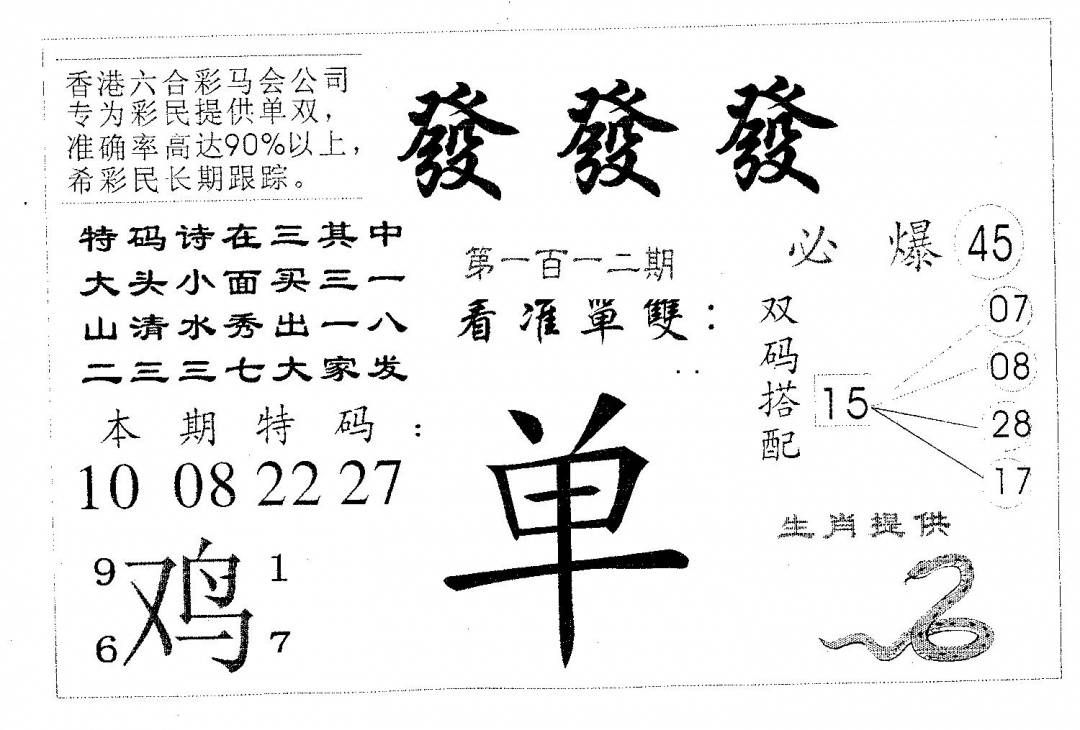 香港六合彩马会公司
专为彩民提供单双，
准确率高达90%以上，
希彩民长期跟踪。
發 發 發
特码诗在三其中
大头小面买三一
山清水秀出一八
二三三七大家发
第一百一二期
看准單雙：
必 爆 45
双码搭配
15
07
08
28
17
本期特码：
10 08 22 27
单
9 1
鸡
6 7
生肖提供